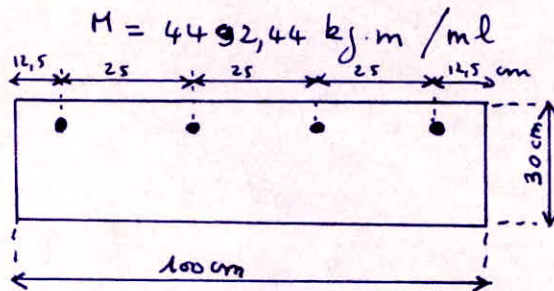 M = 4492,44 kg.m /ml
12,5 25 25 25 12,5 cm
30cm
100cm